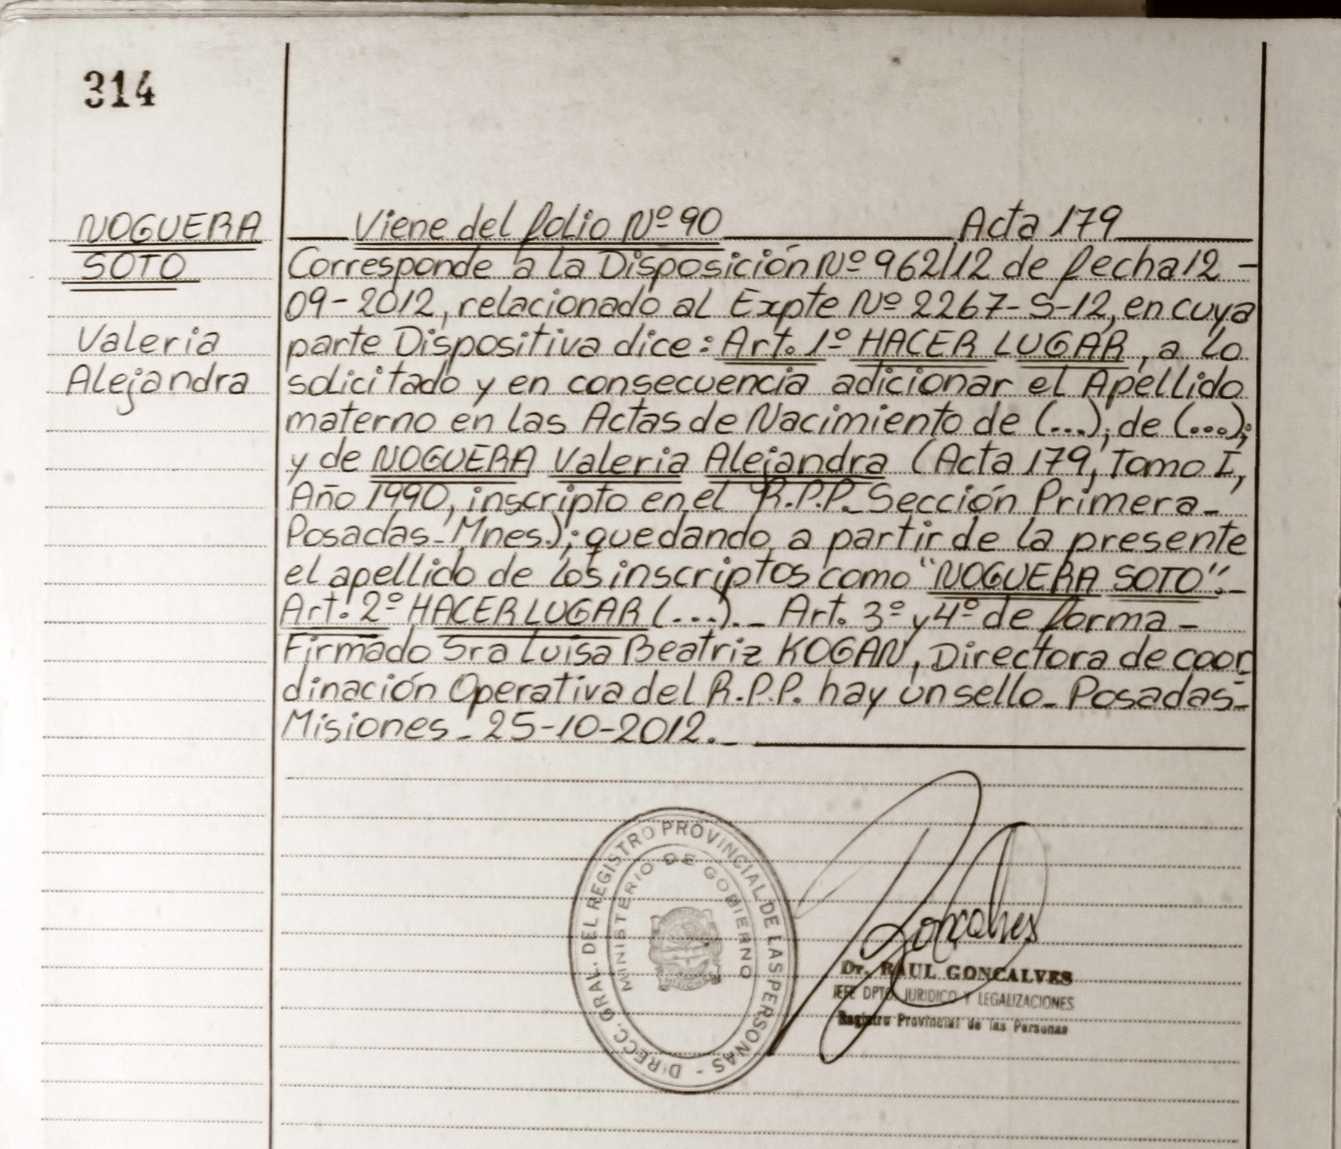 314
NOGUERA
SOTO
Valeria
Alejandra
Viene del folio Nº 90 Acta 179
Corresponde a la Disposición Nº 962/12 de fecha 12-
09-2012, relacionado al Expte Nº 2267-S-12, en cuya
parte Dispositiva dice: Art. 1º HACER LUGAR, a lo
solicitado y en consecuencia adicionar el Apellido
materno en las Actas de Nacimiento de (...); de (...);
y de NOGUERA Valeria Alejandra (Acta 179, Tomo I,
Año 1990, inscripto en el R.P.P. Sección Primera-
Posadas-Mnes.); quedando a partir de la presente
el apellido de los inscriptos como "NOGUERA SOTO".-
Art. 2º HACER LUGAR (...).- Art. 3º y 4º de forma-
Firmado Sra Luisa Beatriz KOGAN, Directora de coor
dinación Operativa del R.P.P. hay un sello- Posadas-
Misiones- 25-10-2012.-
DIRECC. GRAL. DEL REGISTRO PROVINCIAL DE LAS PERSONAS -
MINISTERIO DE GOBIERNO
Goncalves
Dr. RAUL GONCALVES
JEFE DPTO. JURIDICO Y LEGALIZACIONES
Registro Provincial de las Personas